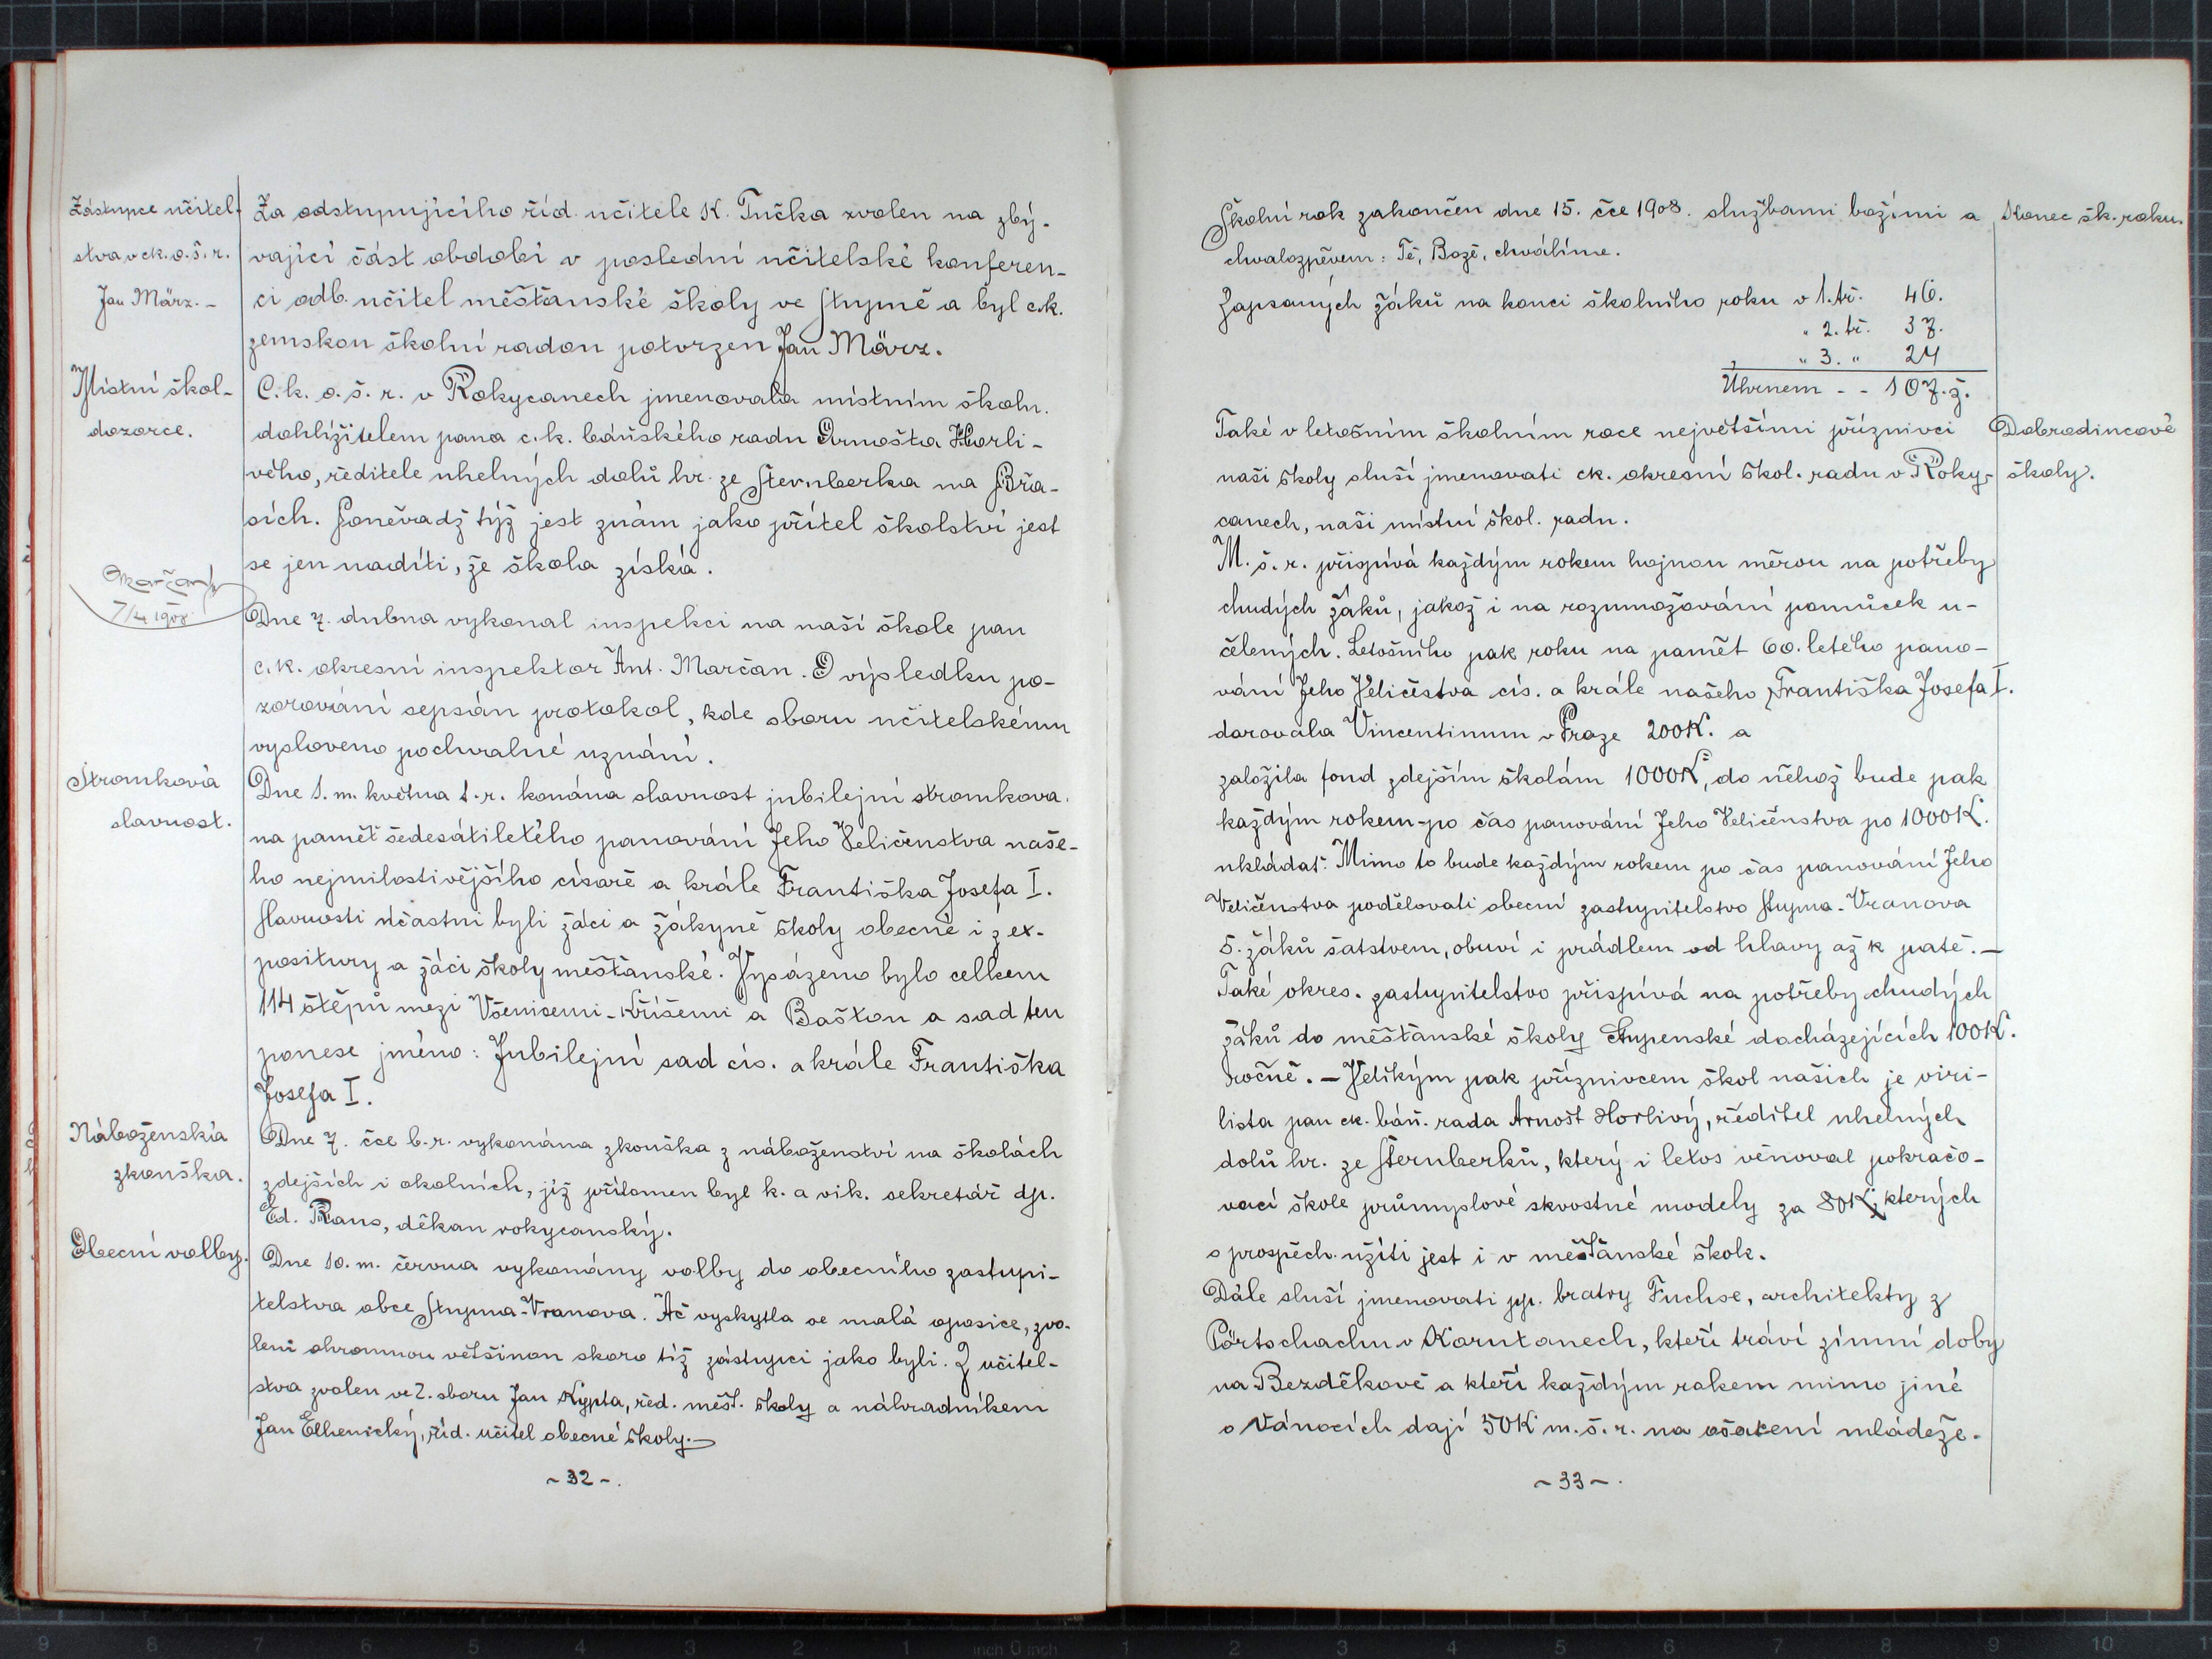 Zástupce učitel-
stva v ck. o. š. r.
Jan März. -
Za odstupujícího říd. učitele K. Tučka zvolen na zbý-
vající část období v poslední učitelské konferen-
ci odb. učitel měšťanské školy ve Stupně a byl c.k.
zemskou školní radou potvrzen Jan März.
Místní škol-
dozorce.
C. k. o. š. r. v Rokycanech jmenovala místním školn.
dohlížitelem pana c. k. báňského radu Arnošta Horli-
vého, ředitele uhelných dolů hr. ze Šternberka na Břa-
sích. Poněvadž týž jest znám jako přítel školství jest
se jen nadíti, že škola získá.
Marčan
7/4 1908
Dne 7. dubna vykonal inspekci na naší škole pan
c. k. okresní inspektor Ant. Marčan. O výsledku po-
zorování sepsán protokol, kde sboru učitelskému
vysloveno pochvalné uznání.
Stromková
slavnost.
Dne 1. m. května t. r. konána slavnost jubilejní stromkova
na paměť šedesátiletého panování Jeho Veličenstva naše-
ho nejmilostivějšího císaře a krále Františka Josefa I.
Slavnosti účastni byli žáci a žákyně školy obecné i z ex-
positury a žáci školy měšťanské. Vysázeno bylo celkem
114 štěpů mezi Všenicemi-Kříšemi a Baštou a sad ten
ponese jméno: Jubilejní sad cís. a krále Františka
Josefa I.
Náboženská
zkouška.
Dne 7. čce b. r. vykonána zkouška z náboženství na školách
zdejších i okolních, jíž přítomen byl k. a vik. sekretář dp.
Ed. Rans, děkan rokycanský.
Obecní volby.
Dne 10. m. června vykonány volby do obecního zastupi-
telstva obce Stupna-Vranova. Ač vyskytla se malá oposice, zvo-
leni ohromnou většinou skoro tíž zástupci jako byli. Z učitel-
stva zvolen ve 2. sboru Jan Kypta, řed. měšť. školy a náhradníkem
Jan Elhenický, říd. učitel obecné školy.-
~ 32 ~.
Školní rok zakončen dne 15. čce 1908. službami božími a
Konec šk. roku.
chvalozpěvem: Tě, Bože, chválíme.
Zapsaných žáků na konci školního roku v 1. tř. 46.
" 2. tř. 37.
" 3. " 24
Úhrnem - - 107. ž.
Také v letošním školním roce největšími příznivci
Dobrodincové
naší školy sluší jmenovati ck. okresní škol. radu v Roky-
školy.
canech, naši místní škol. radu.
M. š. r. přispívá každým rokem hojnou měrou na potřeby
chudých žáků, jakož i na rozmnožování pomůcek u-
čebných. Letošního pak roku na paměť 60. letého pano-
vání Jeho Veličestva cís. a krále našeho Františka Josefa I.
darovala Vincentinum v Praze 200K. a
založila fond zdejším školám 1000K, do něhož bude pak
každým rokem-po čas panování Jeho Veličenstva po 1000K.
ukládat. Mimo to bude každým rokem po čas panování Jeho
Veličenstva podělovati obecní zastupitelstvo Stupna-Vranova
5. žáků šatstvem, obuví i prádlem od hlavy až k patě. -
Také okres. zastupitelstvo přispívá na potřeby chudých
žáků do měšťanské školy Stupenské docházejících 100K.
ročně. - Velikým pak příznivcem škol našich je viri-
lista pan ck. báň. rada Arnošt Horlivý, ředitel uhelných
dolů hr. ze Šternberků, který i letos věnoval pokračo-
vací škole průmyslové skvostné modely za 80K, kterých
s prospěch. užíti jest i v měšťanské škole.
Dále sluší jmenovati pp. bratry Fuchse, architekty z
Pörtschachu v Korutanech, kteří tráví zimní doby
na Bezděkově a kteří každým rokem mimo jiné
o Vánocích dají 50K m. š. r. na ošacení mládeže.
~ 33 ~.